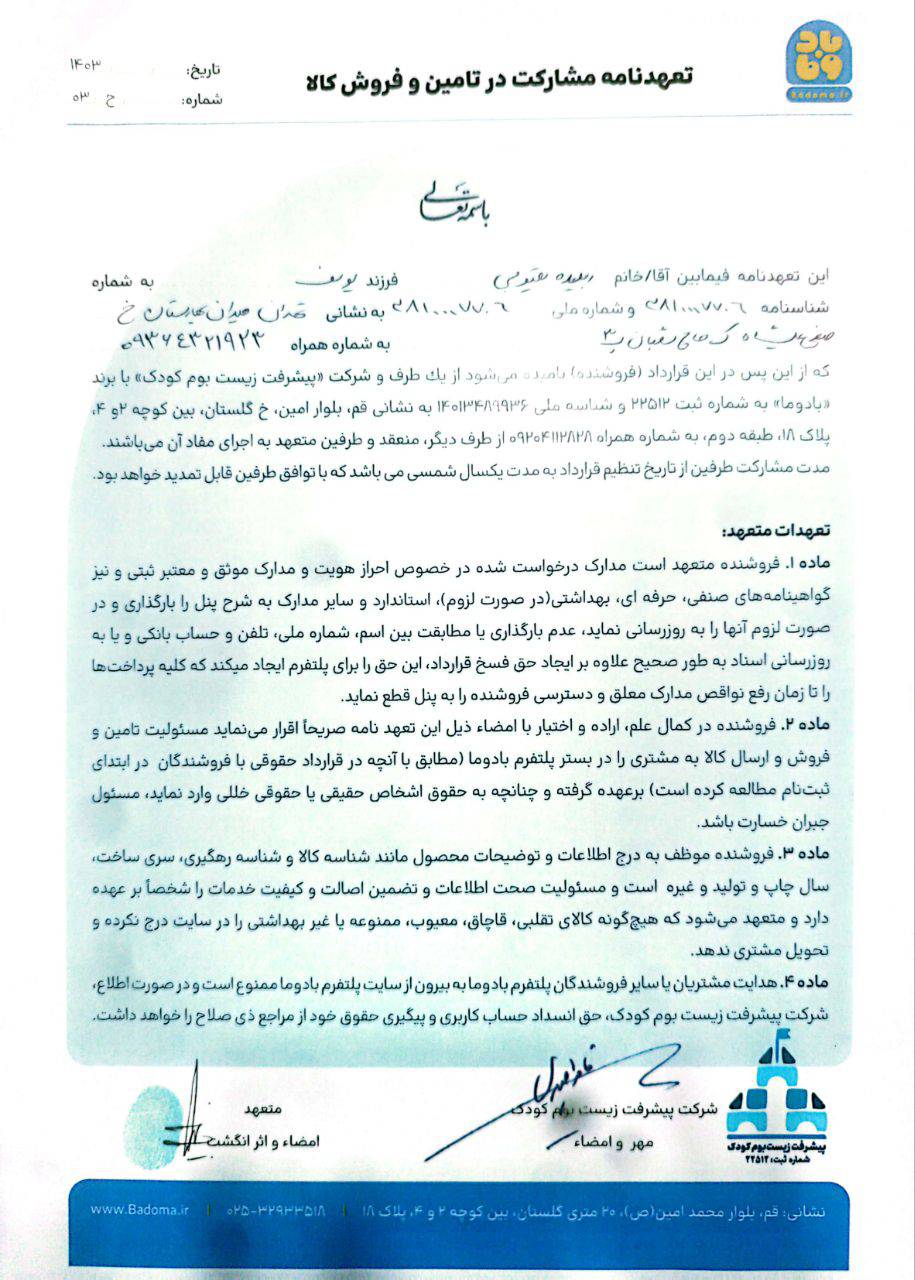 باد
وما
Badoma.ir
تعهدنامه مشارکت در تامین و فروش کالا
تاریخ: ۱۴۰۳
شماره: ۰۳ ح
باسمه تعالی
این تعهدنامه فیمابین آقا/خانم فرزند یوسف به شماره
شناسنامه ۳۸۱۰۰۰۷۷۰۶ و شماره ملی ۳۸۱۰۰۰۷۷۰۶ به نشانی تهران میدان بهارستان خ
صفی علیشاه ک حاج شعبان پ۳ به شماره همراه ۰۹۳۶۴۳۲۱۹۲۳
که از این پس در این قرارداد (فروشنده) نامیده می‌شود از یک طرف و شرکت «پیشرفت زیست بوم کودک» با برند
«بادوما» به شماره ثبت ۲۲۵۱۲ و شناسه ملی ۱۴۰۱۳۴۸۹۹۳۶ به نشانی قم، بلوار امین، خ گلستان، بین کوچه ۲و ۴،
پلاک ۱۸، طبقه دوم، به شماره همراه ۰۹۲۰۴۱۱۲۸۲۸ از طرف دیگر، منعقد و طرفین متعهد به اجرای مفاد آن می‌باشند.
مدت مشارکت طرفین از تاریخ تنظیم قرارداد به مدت یکسال شمسی می باشد که با توافق طرفین قابل تمدید خواهد بود.
تعهدات متعهد:
ماده ۱. فروشنده متعهد است مدارک درخواست شده در خصوص احراز هویت و مدارک موثق و معتبر ثبتی و نیز
گواهینامه‌های صنفی، حرفه ای، بهداشتی(در صورت لزوم)، استاندارد و سایر مدارک به شرح پنل را بارگذاری و در
صورت لزوم آنها را به روزرسانی نماید، عدم بارگذاری یا مطابقت بین اسم، شماره ملی، تلفن و حساب بانکی و یا به
روزرسانی اسناد به طور صحیح علاوه بر ایجاد حق فسخ قرارداد، این حق را برای پلتفرم ایجاد میکند که کلیه پرداخت‌ها
را تا زمان رفع نواقص مدارک معلق و دسترسی فروشنده را به پنل قطع نماید.
ماده ۲. فروشنده در کمال علم، اراده و اختیار با امضاء ذیل این تعهد نامه صریحاً اقرار می‌نماید مسئولیت تامین و
فروش و ارسال کالا به مشتری را در بستر پلتفرم بادوما (مطابق با آنچه در قرارداد حقوقی با فروشندگان در ابتدای
ثبت‌نام مطالعه کرده است) برعهده گرفته و چنانچه به حقوق اشخاص حقیقی یا حقوقی خللی وارد نماید، مسئول
جبران خسارت باشد.
ماده ۳. فروشنده موظف به درج اطلاعات و توضیحات محصول مانند شناسه کالا و شناسه رهگیری، سری ساخت،
سال چاپ و تولید و غیره است و مسئولیت صحت اطلاعات و تضمین اصالت و کیفیت خدمات را شخصاً بر عهده
دارد و متعهد می‌شود که هیچ‌گونه کالای تقلبی، قاچاق، معیوب، ممنوعه یا غیر بهداشتی را در سایت درج نکرده و
تحویل مشتری ندهد.
ماده ۴. هدایت مشتریان یا سایر فروشندگان پلتفرم بادوما به بیرون از سایت پلتفرم بادوما ممنوع است و در صورت اطلاع،
شرکت پیشرفت زیست بوم کودک، حق انسداد حساب کاربری و پیگیری حقوق خود از مراجع ذی صلاح را خواهد داشت.
شرکت پیشرفت زیست بوم کودک
مهر و امضاء
متعهد
امضاء و اثر انگشت
پیشرفت زیست بوم کودک
شماره ثبت: ۲۲۵۱۲
نشانی: قم، بلوار محمد امین(ص)، ۲۰ متری گلستان، بین کوچه ۲ و ۴، پلاک ۱۸ | ۰۲۵-۳۲۹۳۳۵۱۸ | www.Badoma.ir